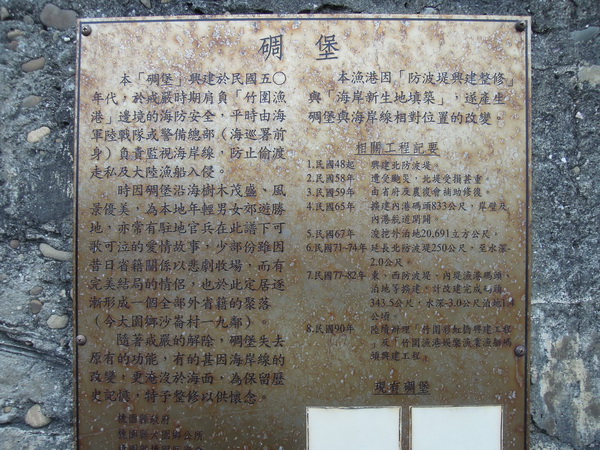 碉堡
本「碉堡」興建於民國五〇
年代，於戒嚴時期肩負「竹圍漁
港」邊境的海防安全，平時由海
軍陸戰隊或警備總部（海巡署前
身）負責監視海岸線，防止偷渡
走私及大陸漁船入侵。
時因碉堡沿海樹木茂盛、風
景優美，為本地年輕男女郊遊勝
地，亦常有駐地官兵在此譜下可
歌可泣的愛情故事，少部份雖因
昔日省籍關係以悲劇收場，而有
完美結局的情侶，也於此定居逐
漸形成一個全部外省籍的聚落
（今大園鄉沙崙村一九鄰）。
隨著戒嚴的解除，碉堡失去
原有的功能，有的甚因海岸線的
改變，更淹沒於海面，為保留歷
史記憶，特予整修以供懷念。
桃園縣政府
桃園縣大園鄉公所
本漁港因「防波堤興建整修」
與「海岸新生地填築」，遂產生
碉堡與海岸線相對位置的改變。
相關工程記要
1.民國48起 興建北防波堤。
2.民國58年 遭受颱災，北堤受損甚重。
3.民國59年 由省府及農復會補助修復。
4.民國65年 擴建內港碼頭833公尺，岸壁及
內港航道開闢。
5.民國67年 浚挖外泊地20,691立方公尺。
6.民國71-74年 延長北防波堤250公尺，至水深-
2.0公尺。
7.民國77-82年 東、西防波堤、內堤漁港碼頭、
泊地等擴建，計改建完成碼頭
343.5公尺，水深-3.0公尺泊地1.4
公頃。
8.民國90年 陸續辦理「竹圍彩虹橋興建工程
」及「竹圍漁港娛樂漁業漁船碼
頭興建工程」
現有碉堡